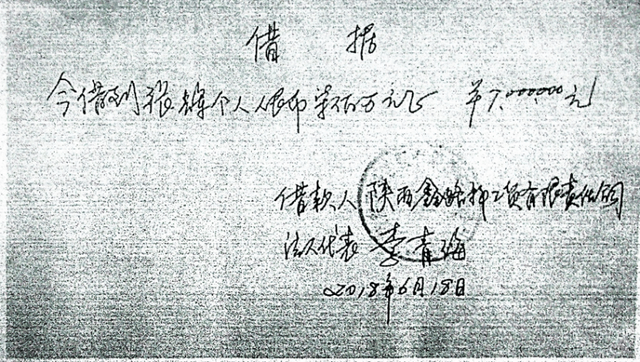 借 据
今借到张 个人人民币柒百万元正 ¥7.000000元
借款人 陕西鑫 工贸有限责任公司
法人代表 李青海
2018年6月18日